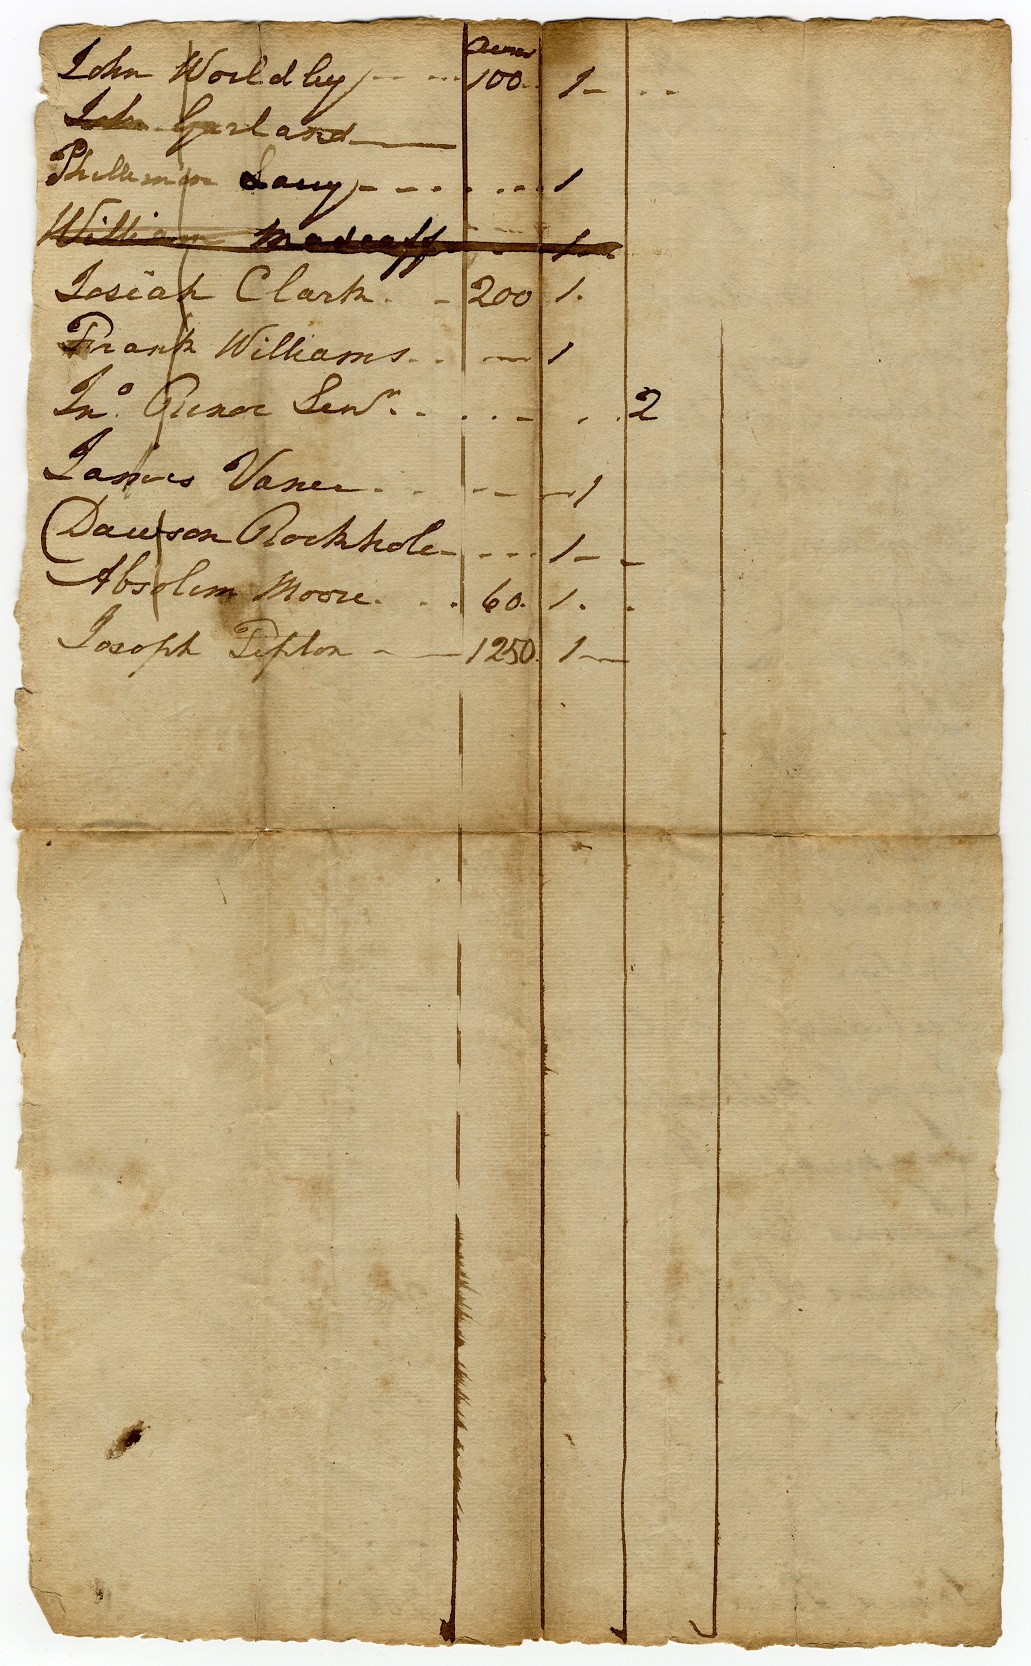 Acres
John Worldley 100. 1
John Garland
Philleman Lacey 1
William Madcaff 1
Josiah Clark 200 1.
Frank Williams 1
Jno. Renoe Senr. 2
James Vance 1
Dawson Rockhole 1
Absolem Moore 60. 1.
Joseph Tipton 1250. 1